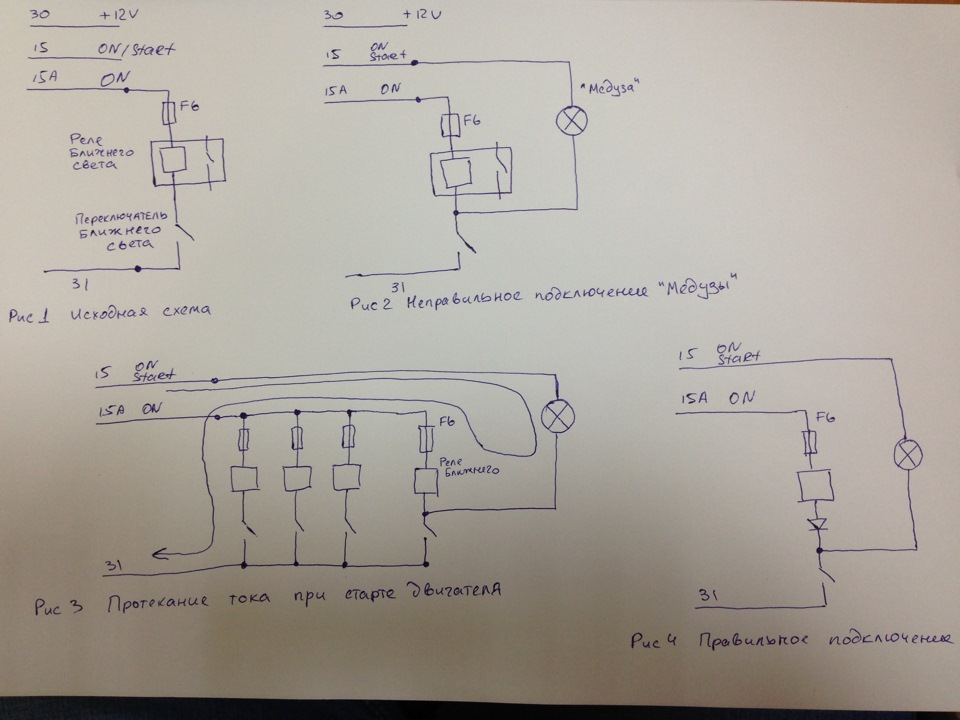 30 +12V
15 ON/Start
15A ON
F6
Реле
Ближнего
света
Переключатель
Ближнего
света
31
Рис 1 Исходная схема
30 +12V
15 ON
Start
15A ON
"Медуза"
F6
31
Рис 2 Неправильное подключение "Медузы"
15 ON
Start
15A ON
F6
Реле
Ближнего
31
Рис 3 Протекание тока при старте двигателя
15 ON
Start
15A ON
F6
31
Рис 4 Правильное подключение